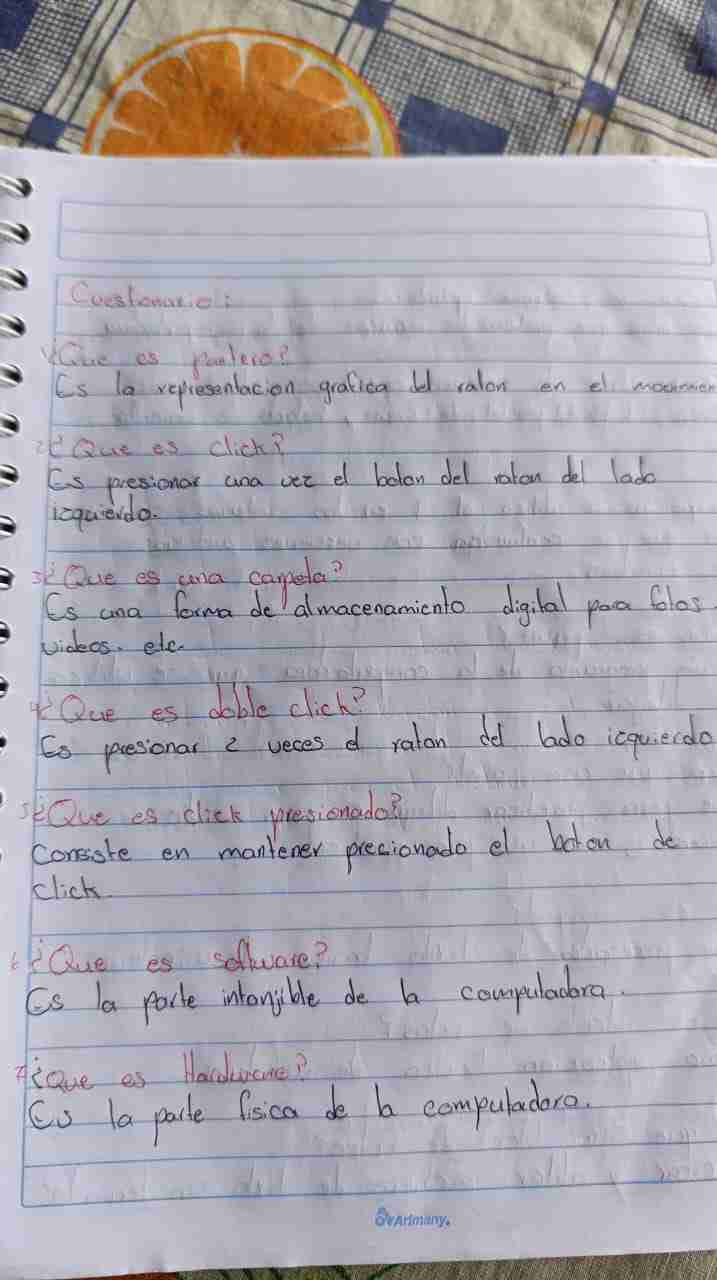 Cuestionario:
1¿Que es puntero?
Es la representacion grafica del raton en el movimien
2¿Que es click?
Es presionar una vez el boton del raton del lado
izquierdo.
3¿Que es una carpeta?
Es una forma de almacenamiento digital para fotos
videos. etc.
4¿Que es doble click?
Es presionar 2 veces el raton del lado izquierdo
5¿Que es click presionado?
Consiste en mantener precionado el boton de
click.
6¿Que es software?
Es la parte intanjible de la computadora.
7¿Que es Hardware?
Es la parte fisica de la computadora.
Artimany.